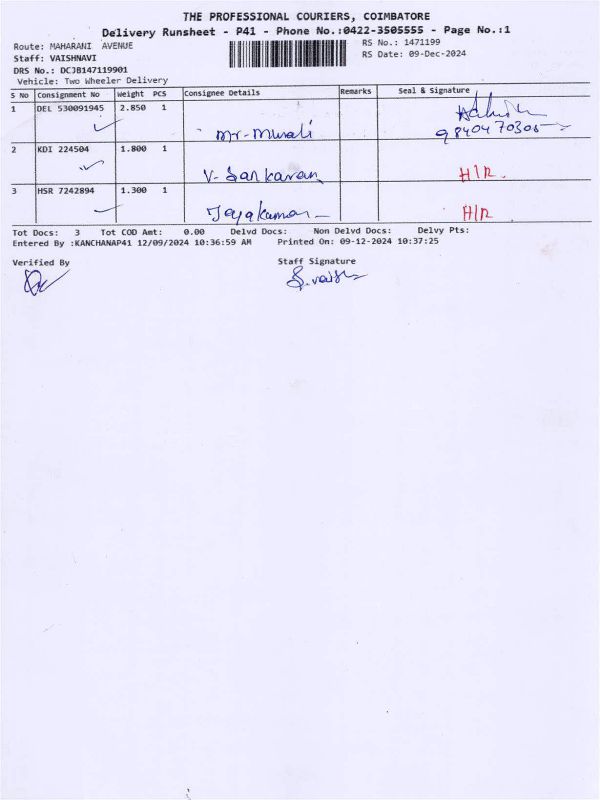 THE PROFESSIONAL COURIERS, COIMBATORE
Delivery Runsheet - P41 - Phone No.:0422-3505555 - Page No.:1
Route: MAHARANI AVENUE
RS No.: 1471199
Staff: VAISHNAVI
RS Date: 09-Dec-2024
DRS No.: DCJB147119901
Vehicle: Two Wheeler Delivery
S No Consignment No Weight PCS Consignee Details Remarks Seal & Signature
1 DEL 530091945 2.850 1
Mr-Murali 9840470305
2 KDI 224504 1.800 1
V-Sankaran H/R.
3 HSR 7242894 1.300 1
Jayakumar H/R
Tot Docs: 3 Tot COD Amt: 0.00 Delvd Docs: Non Delvd Docs: Delvy Pts:
Entered By :KANCHANAP41 12/09/2024 10:36:59 AM Printed On: 09-12-2024 10:37:25
Verified By Staff Signature